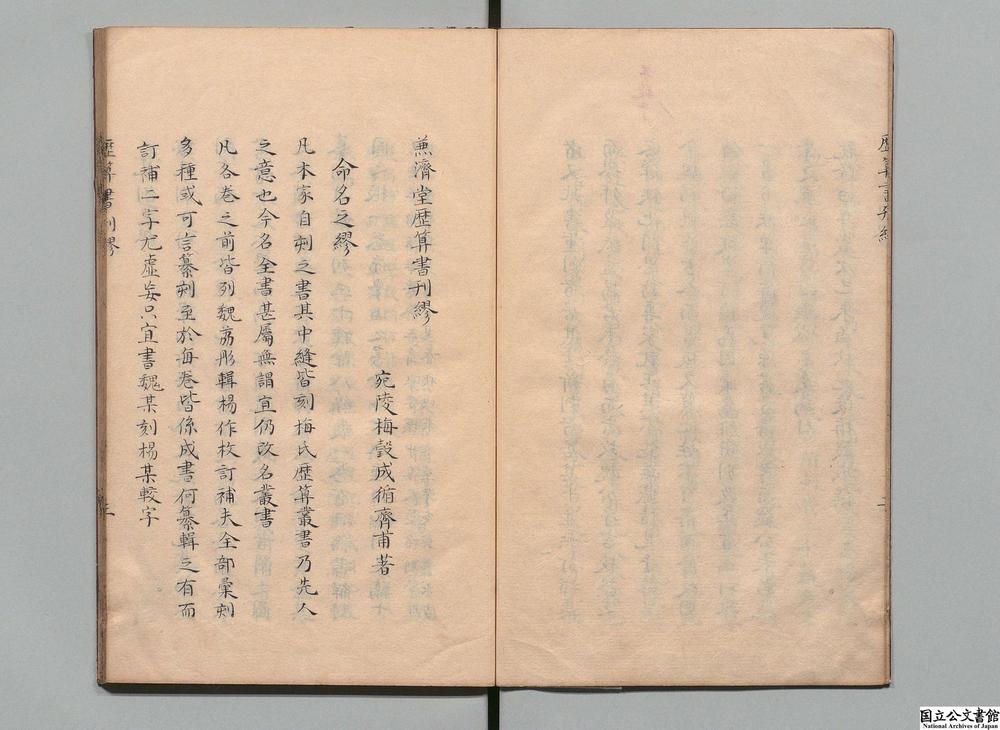 兼濟堂歷算書刊繆
宛陵梅瑴成循齋甫著
命名之繆
凡本家自刻之書其中縫皆刻梅氏歷算叢書乃先人
之意也今名全書甚屬無謂宜仍改名叢書
凡各卷之前皆列魏荔彤輯楊作枚訂補夫全部彙刻
多種或可言纂刻至於每卷皆係成書何纂輯之有而
訂補二字尤虛妄只宜書魏某刻楊某較字
歷算書刊繆
国立公文書館
National Archives of Japan